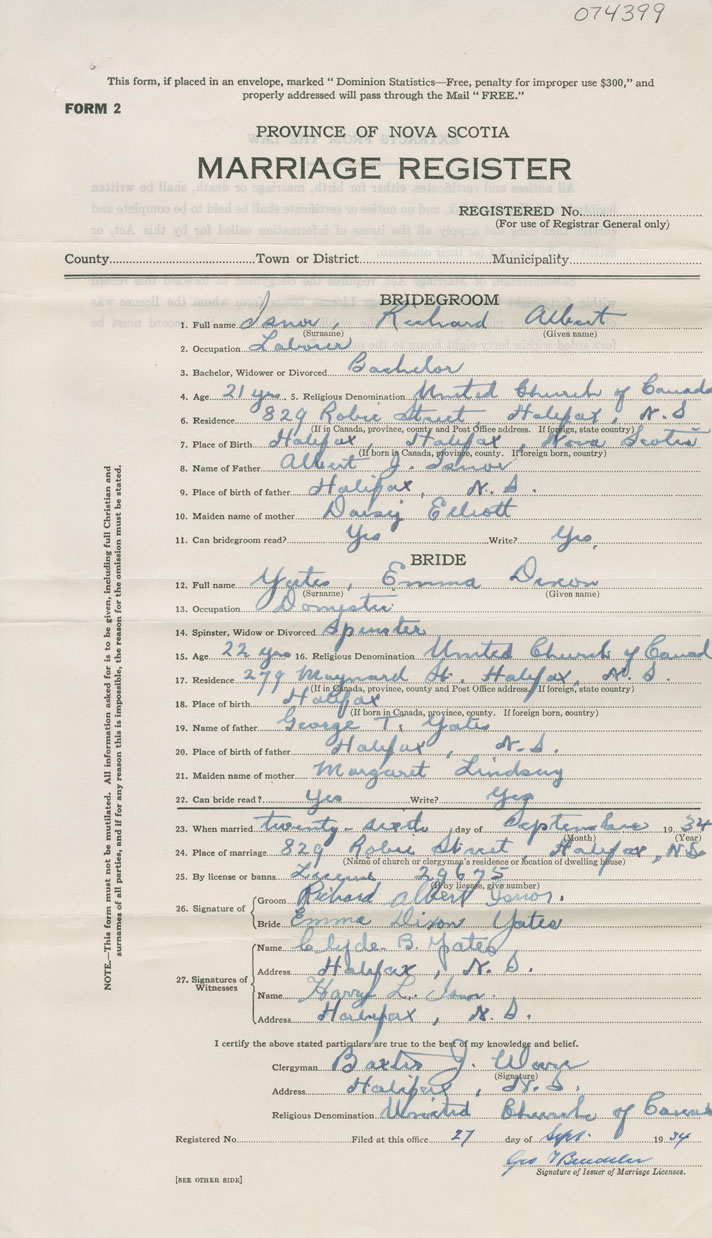 074399
This form, if placed in an envelope, marked " Dominion Statistics—Free, penalty for improper use $300," and
properly addressed will pass through the Mail " FREE."
FORM 2
PROVINCE OF NOVA SCOTIA
MARRIAGE REGISTER
REGISTERED No.
(For use of Registrar General only)
County Town or District Municipality
BRIDEGROOM
1. Full name Isnor, Richard Albert
(Surname) (Given name)
2. Occupation Laborer
3. Bachelor, Widower or Divorced Bachelor
4. Age 21 yrs. 5. Religious Denomination United Church of Canada
6. Residence 829 Robie Street, Halifax, N.S
(If in Canada, province, county and Post Office address. If foreign, state country)
7. Place of Birth Halifax, Halifax, Nova Scotia
(If born in Canada, province, county. If foreign born, country)
8. Name of Father Albert J. Isnor
9. Place of birth of father Halifax, N.S.
10. Maiden name of mother Daisy Elliott
11. Can bridegroom read? Yes Write? Yes,
BRIDE
12. Full name Yates, Emma Dixon
(Surname) (Given name)
13. Occupation Domestic
14. Spinster, Widow or Divorced Spinster
15. Age 22 yrs 16. Religious Denomination United Church of Canad
17. Residence 279 Maynard St. Halifax, N.S.
(If in Canada, province, county and Post Office address. If foreign, state country)
18. Place of birth Halifax
(If born in Canada, province, county. If foreign born, country)
19. Name of father George T. Yates
20. Place of birth of father Halifax, N.S.
21. Maiden name of mother Margaret Lindsay
22. Can bride read? Yes Write? Yes
23. When married twenty-sixth day of September 1934
(Month) (Year)
24. Place of marriage 829 Robie Street, Halifax, N.S.
(Name of church or clergyman's residence or location of dwelling house)
25. By license or banns License 29675
(If by license, give number)
26. Signature of Groom Richard Albert Isnor.
Bride Emma Dixon Yates
27. Signatures of Witnesses Name Clyde B. Yates
Address Halifax, N.S.
Name Harry L. Isnor.
Address Halifax, N.S.
I certify the above stated particulars are true to the best of my knowledge and belief.
Clergyman Baxter J.
(Signature)
Address Halifax, N.S.
Religious Denomination United Church of Canad
Registered No. Filed at this office 27 day of Sept. 1934
Geo
Signature of Issuer of Marriage Licenses.
[SEE OTHER SIDE]
NOTE.—This form must not be mutilated. All information asked for is to be given, including full Christian and
surnames of all parties, and if for any reason this is impossible, the reason for the omission must be stated.